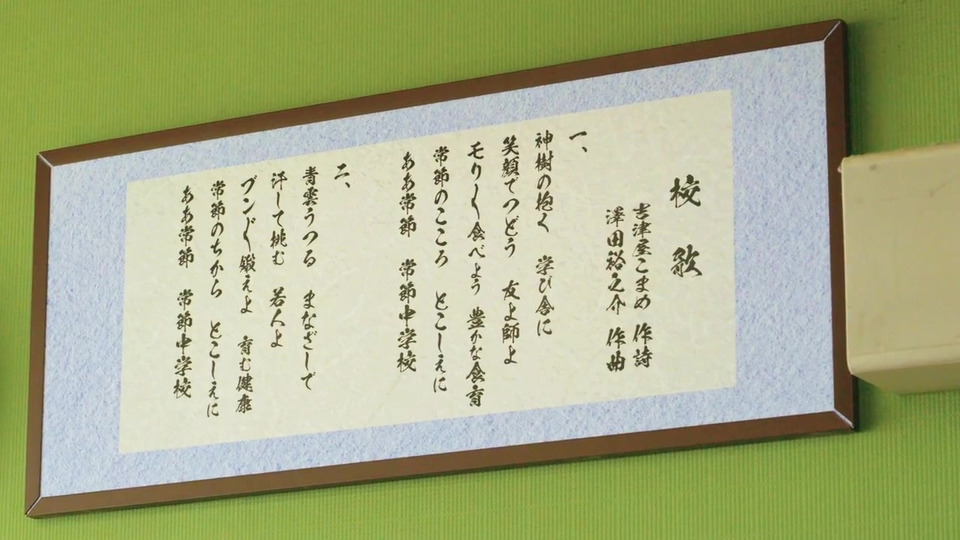 校 歌
吉津屋こまめ 作詩
澤田裕之介 作曲
一、
神樹の抱く 学び舎に
笑顔でつどう 友よ師よ
モリ〱食べよう 豊かな食育
常節のこころ とこしえに
ああ常節 常節中学校
二、
青雲うつる まなざしで
汗して挑む 若人よ
ブンド〱鍛えよ 育む健康
常節のちから とこしえに
ああ常節 常節中学校